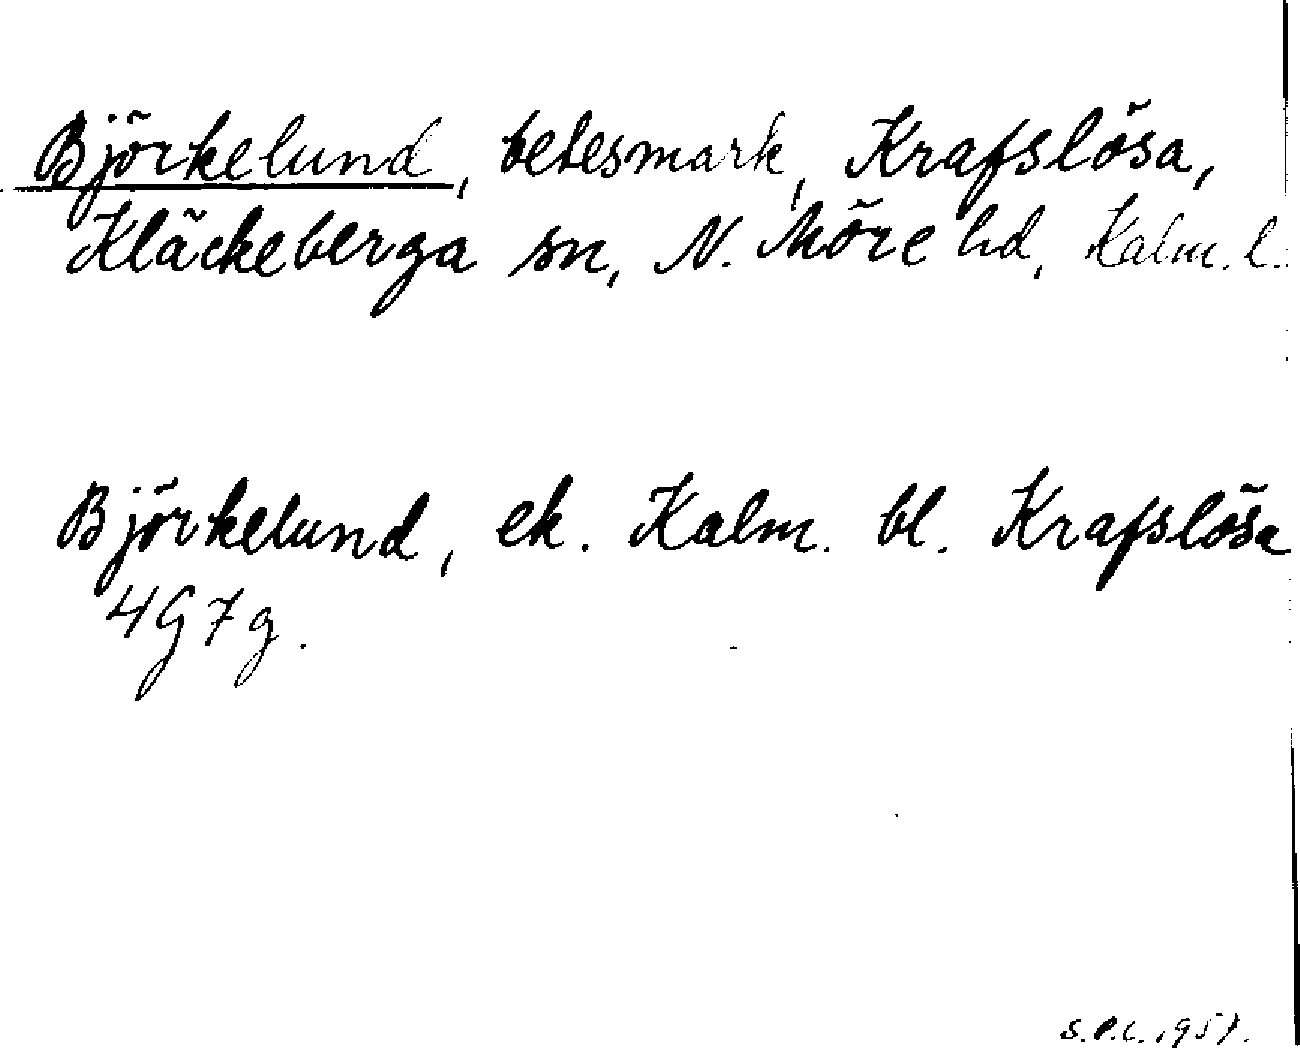 Björkelund, betesmark, Krafslösa,
Kläckeberga sn, N. Möre hd, Kalm. l.
Björkelund, ek. Kalm. bl. Krafslösa
4G7g.